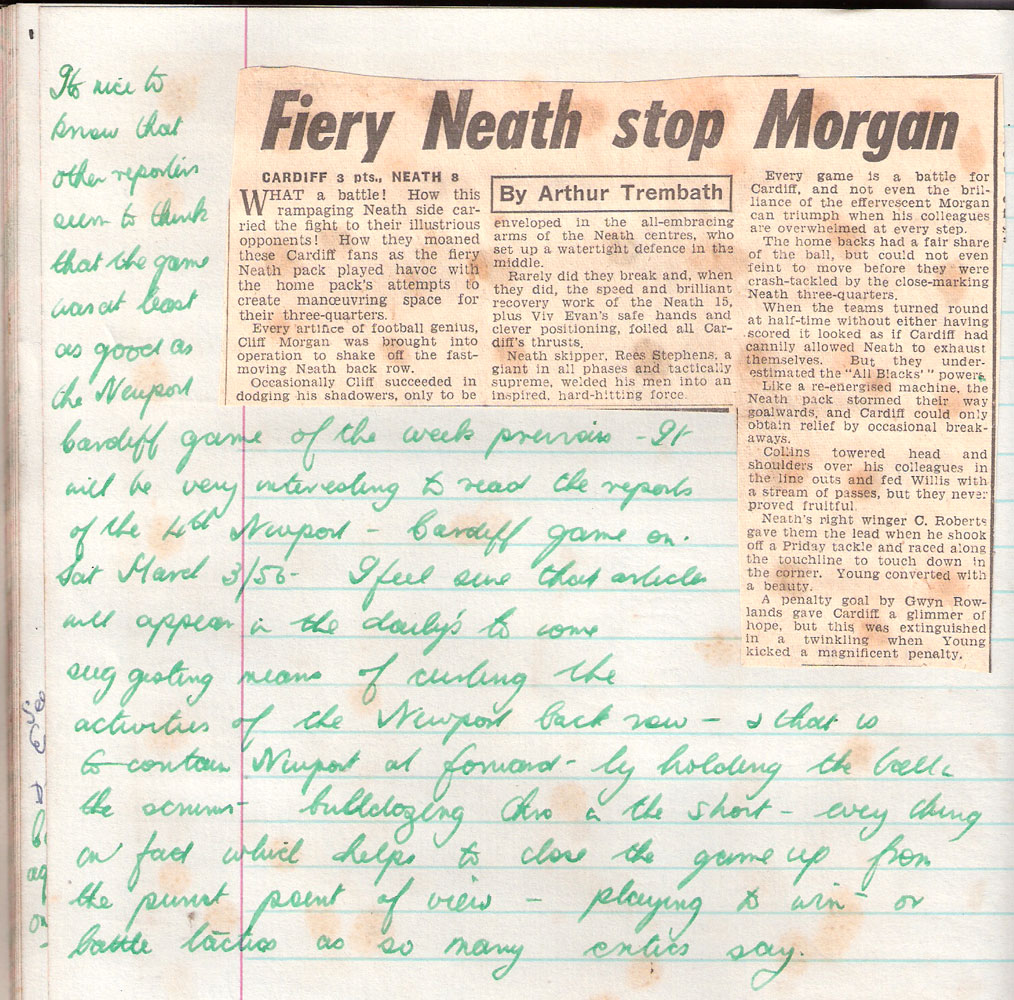 Its nice to
know that
other reporters
seem to think
that the game
was at least
as good as
the Newport
Cardiff game of the week previous - It
will be very interesting to read the reports
of the 4th Newport - Cardiff game on.
Sat March 3/56 - I feel sure that articles
will appear in the daily's to come
suggesting means of curling the
activities of the Newport back row - & that is
to contain Newport at forward - by holding the ball in
the scrums - bulldozing thro in the short - every thing
in fact which helps to close the game up from
the purist point of view - playing to win - or
battle tactics as so many critics say.
Fiery Neath stop Morgan
CARDIFF 3 pts., NEATH 8
WHAT a battle! How this
rampaging Neath side car-
ried the fight to their illustrious
opponents! How they moaned
these Cardiff fans as the fiery
Neath pack played havoc with
the home pack's attempts to
create manœuvring space for
their three-quarters.
Every artifice of football genius,
Cliff Morgan was brought into
operation to shake off the fast-
moving Neath back row.
Occasionally Cliff succeeded in
dodging his shadowers, only to be
By Arthur Trembath
enveloped in the all-embracing
arms of the Neath centres, who
set up a watertight defence in the
middle.
Rarely did they break and, when
they did, the speed and brilliant
recovery work of the Neath 15,
plus Viv Evan's safe hands and
clever positioning, foiled all Car-
diff's thrusts.
Neath skipper, Rees Stephens, a
giant in all phases and tactically
supreme, welded his men into an
inspired, hard-hitting force.
Every game is a battle for
Cardiff, and not even the bril-
liance of the effervescent Morgan
can triumph when his colleagues
are overwhelmed at every step.
The home backs had a fair share
of the ball, but could not even
feint to move before they were
crash-tackled by the close-marking
Neath three-quarters.
When the teams turned round
at half-time without either having
scored it looked as if Cardiff had
cannily allowed Neath to exhaust
themselves. But they under-
estimated the "All Blacks'" powers.
Like a re-energised machine, the
Neath pack stormed their way
goalwards, and Cardiff could only
obtain relief by occasional break-
aways.
Collins towered head and
shoulders over his colleagues in
the line outs and fed Willis with
a stream of passes, but they never
proved fruitful.
Neath's right winger C. Roberts
gave them the lead when he shook
off a Priday tackle and raced along
the touchline to touch down in
the corner. Young converted with
a beauty.
A penalty goal by Gwyn Row-
lands gave Cardiff a glimmer of
hope, but this was extinguished
in a twinkling when Young
kicked a magnificent penalty.